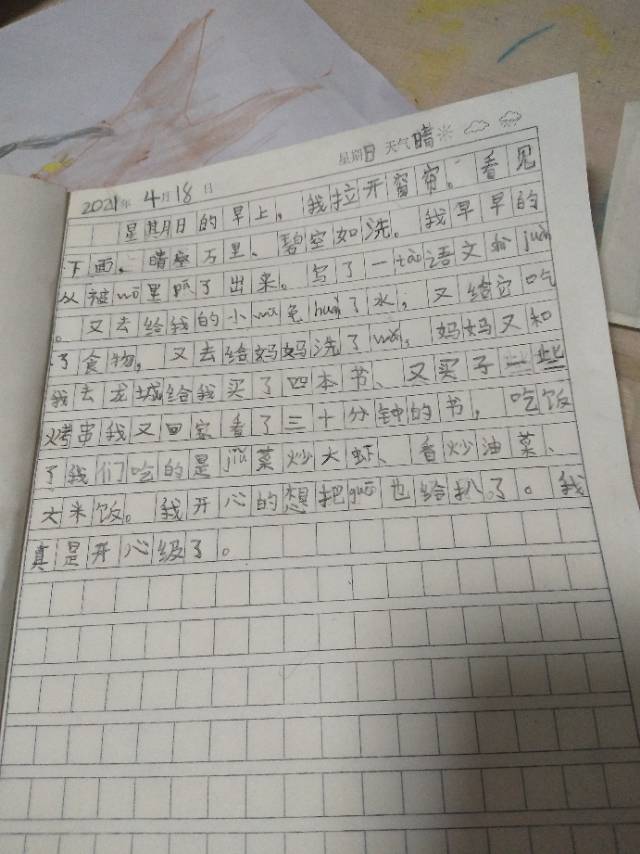 星期日 天气晴
2021年 4月18日
星期日的早上。我拉开窗帘。看见
下面、晴空万里、碧空如洗。我早早的
从被wō里爬了出来。写了一tào语文小juàn
。又去给我的小wū龟huàn了水，又给它吃
了食物，又去给妈妈洗了wǎn，妈妈又和
我去龙城给我买了四本书、又买了一些
烤串我又回家看了三十分钟的书，吃饭
了我们吃的是jiǔ菜炒大虾、香炒油菜、
大米饭。我开心的想把guō也给扒了。我
真是开心级了。